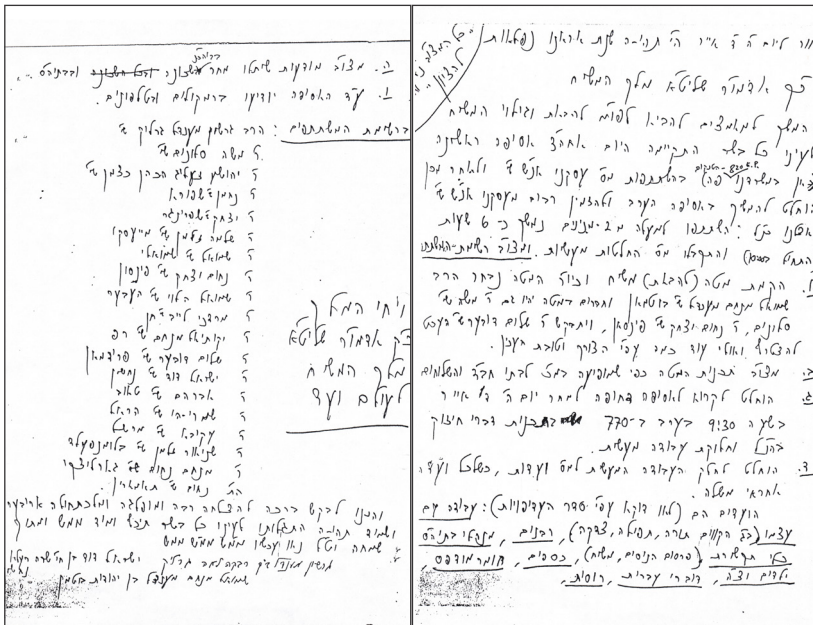 אור ליום ה' ד' אייר ה' תהי' שנת אראנו נפלאות
כ"ק אדמו"ר שליט"א מלך המשיח
המשך למאמצים להביא לפועל להבאת וגילוי המשיח
לעיני כל בשר התקיימה היום אחה"צ אסיפה ראשונה
כאן במשרדנו (פה) בהשתתפות מס' עסקני אנ"ש שי' ולאחר מכן
הוחלט להמשך באסיפה הערב ולהזמין רבוי מעסקני אנ"ש שי'
אצלנו כנ"ל: השתתפו למעלה מ-2 מנינים נמשך כ-6 שעות
והתקבלו מס' החלטות מעשיות. ומצו"ב רשימת-המשתת'
א. הקמת מטה (להבאת) משיח וכיו"ר המטה נבחר הרב
שמואל מנחם מענדל שי' בוטמאן וחברים במטה יהיו גם ר' משה שי'
סלונים, ר' נחום יצחק שי' פינסאן, ויתבקש ר' שלום דובער שי' העכט
להצטרף ואולי עוד כמה עפ"י הצורך וטובת הענין.
ב. מצו"ב תכנית המטה כפי שמופיעה במכ' לבתי חב"ד והשלוחים
ג. הוחלט לקרוא לאסיפה דחופה למחר יום ה' ד' אייר
בשעה 9:30 בערב ב-770 בתכנית דברי חיזוק
בהנ"ל וחלוקת עבודה מעשית.
ד. הוחלט לחלק העבודה המעשית למס' ועדות, כשלכל ועדה
אחראי משלה.
הועדים הם (לאו דוקא עפ"י סדר העדיפויות): עבודה עם
עצמו (בג' הקווים תורה, תפילה, צדקה), רבנים, מנהלי בתיה"ס
כלי תקשורת (פרסום הניסים, משיח), כספים, חומר מודפס,
ילדים וצ"ה, דוברי עברית, רוסית,
ה. מצו"ב מודעות שיתלו מחר בשכונה ובבתיה"ס
ו. עד האסיפה יודיעו ברמקולים ובטלפונים.
ברשימת המשתתפים: הרב גרשון מענדל גרליק שי'
ר' משה סלונים שי'
ר' יהושע זעליג הכהן כצמן שי'
ר' נחמן שי' שפירא
ר' יצחק שי' שפרינגר
ר' שלמה זלמן שי'
ר' שמואל שי' שמואלי
ר' נחום יצחק שי' פינסון
ר' שמואל הלוי שי' העבער
ר' מרדכי לייב שי' חן
ר' יקותיאל מנחם שי' רפ
ר' שלום דובער שי' פרידמאן
ר' ישראל דוד שי' נחשון
ר' אברהם שי' טאוב
ר' שמריהו שי' הראל
ר' עקיבא שי' מרשל
ר' שניאור זלמן שי' בלומנפעלד
ר' מנחם נחום שי' גארליצקי
הת' נחום שי'
והננו לבקש ברכה להצלחה רבה ומופלגה ומלכתחילה אריבער
ושמיד תהי' התגלותו לעיני כל בשר תיכף ומיד ממש ומתוך
שמחה וטוב לבב נאו עכשיו ממש ממש ממש
שמואל מנחם מענדל בן יהודית בוטמן
יחי המלך
כ"ק אדמו"ר שליט"א
מלך המשיח
לעולם ועד